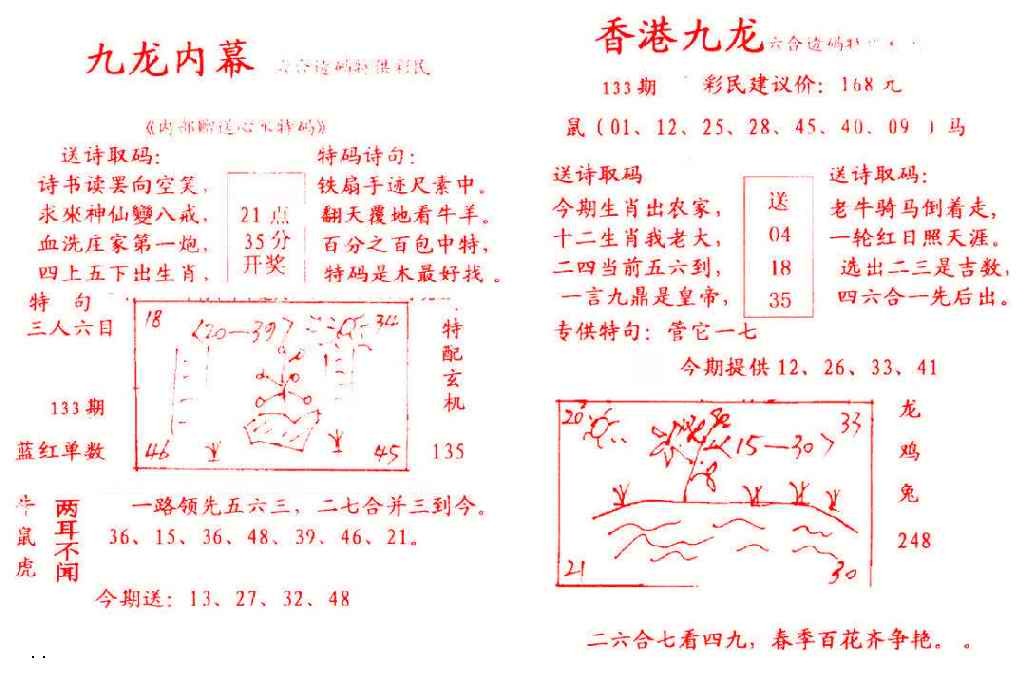 九龙内幕
六合造码特供彩民
《内部赠送心水特码》
送诗取码：
诗书读罢向空笑，
求來神仙變八戒，
血洗庄家第一炮，
四上五下出生肖，
21点
35分
开奖
特码诗句：
铁扇手迹尺素中。
翻天覆地看牛羊。
百分之百包中特，
特码是木最好找。
特 句
三人六目
133期
蓝红单数
18
34
〈20—39〉
46
45
特
配
玄
机
135
牛
鼠
虎
两
耳
不
闻
一路领先五六三，二七合并三到今。
36、15、36、48、39、46、21。
今期送：13、27、32、48
香港九龙
六合造码特
133期
彩民建议价：168元
鼠（01、12、25、28、45、40、09）马
送诗取码
今期生肖出农家，
十二生肖我老大，
二四当前五六到，
一言九鼎是皇帝，
送
04
18
35
送诗取码：
老牛骑马倒着走，
一轮红日照天涯。
选出二三是吉数，
四六合一先后出。
专供特句：管它一七
今期提供12、26、33、41
20
33
〈15—30〉
21
30
龙
鸡
兔
248
二六合七看四九，春季百花齐争艳。。